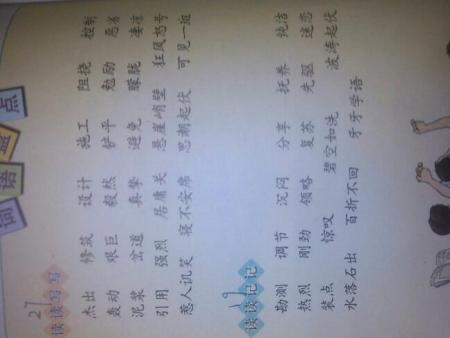 词语盘点
27
读读写写
杰出 修筑 设计 施工 阻挠 控制
轰动 艰巨 毅然 铲平 勉励 恶劣
泥浆 岔道 真挚 避免 朦胧 凄凉
引用 强烈 居庸关 悬崖峭壁 狂风怒号
惹人讥笑 寝不安席 思潮起伏 可见一斑
读读记记
勘测 调节 沉闷 分享 抚养 纯洁
热烈 刚劲 领略 复苏 先驱 迷恋
装点 惊叹 碧空如洗 波涛起伏
水落石出 百折不回 牙牙学语